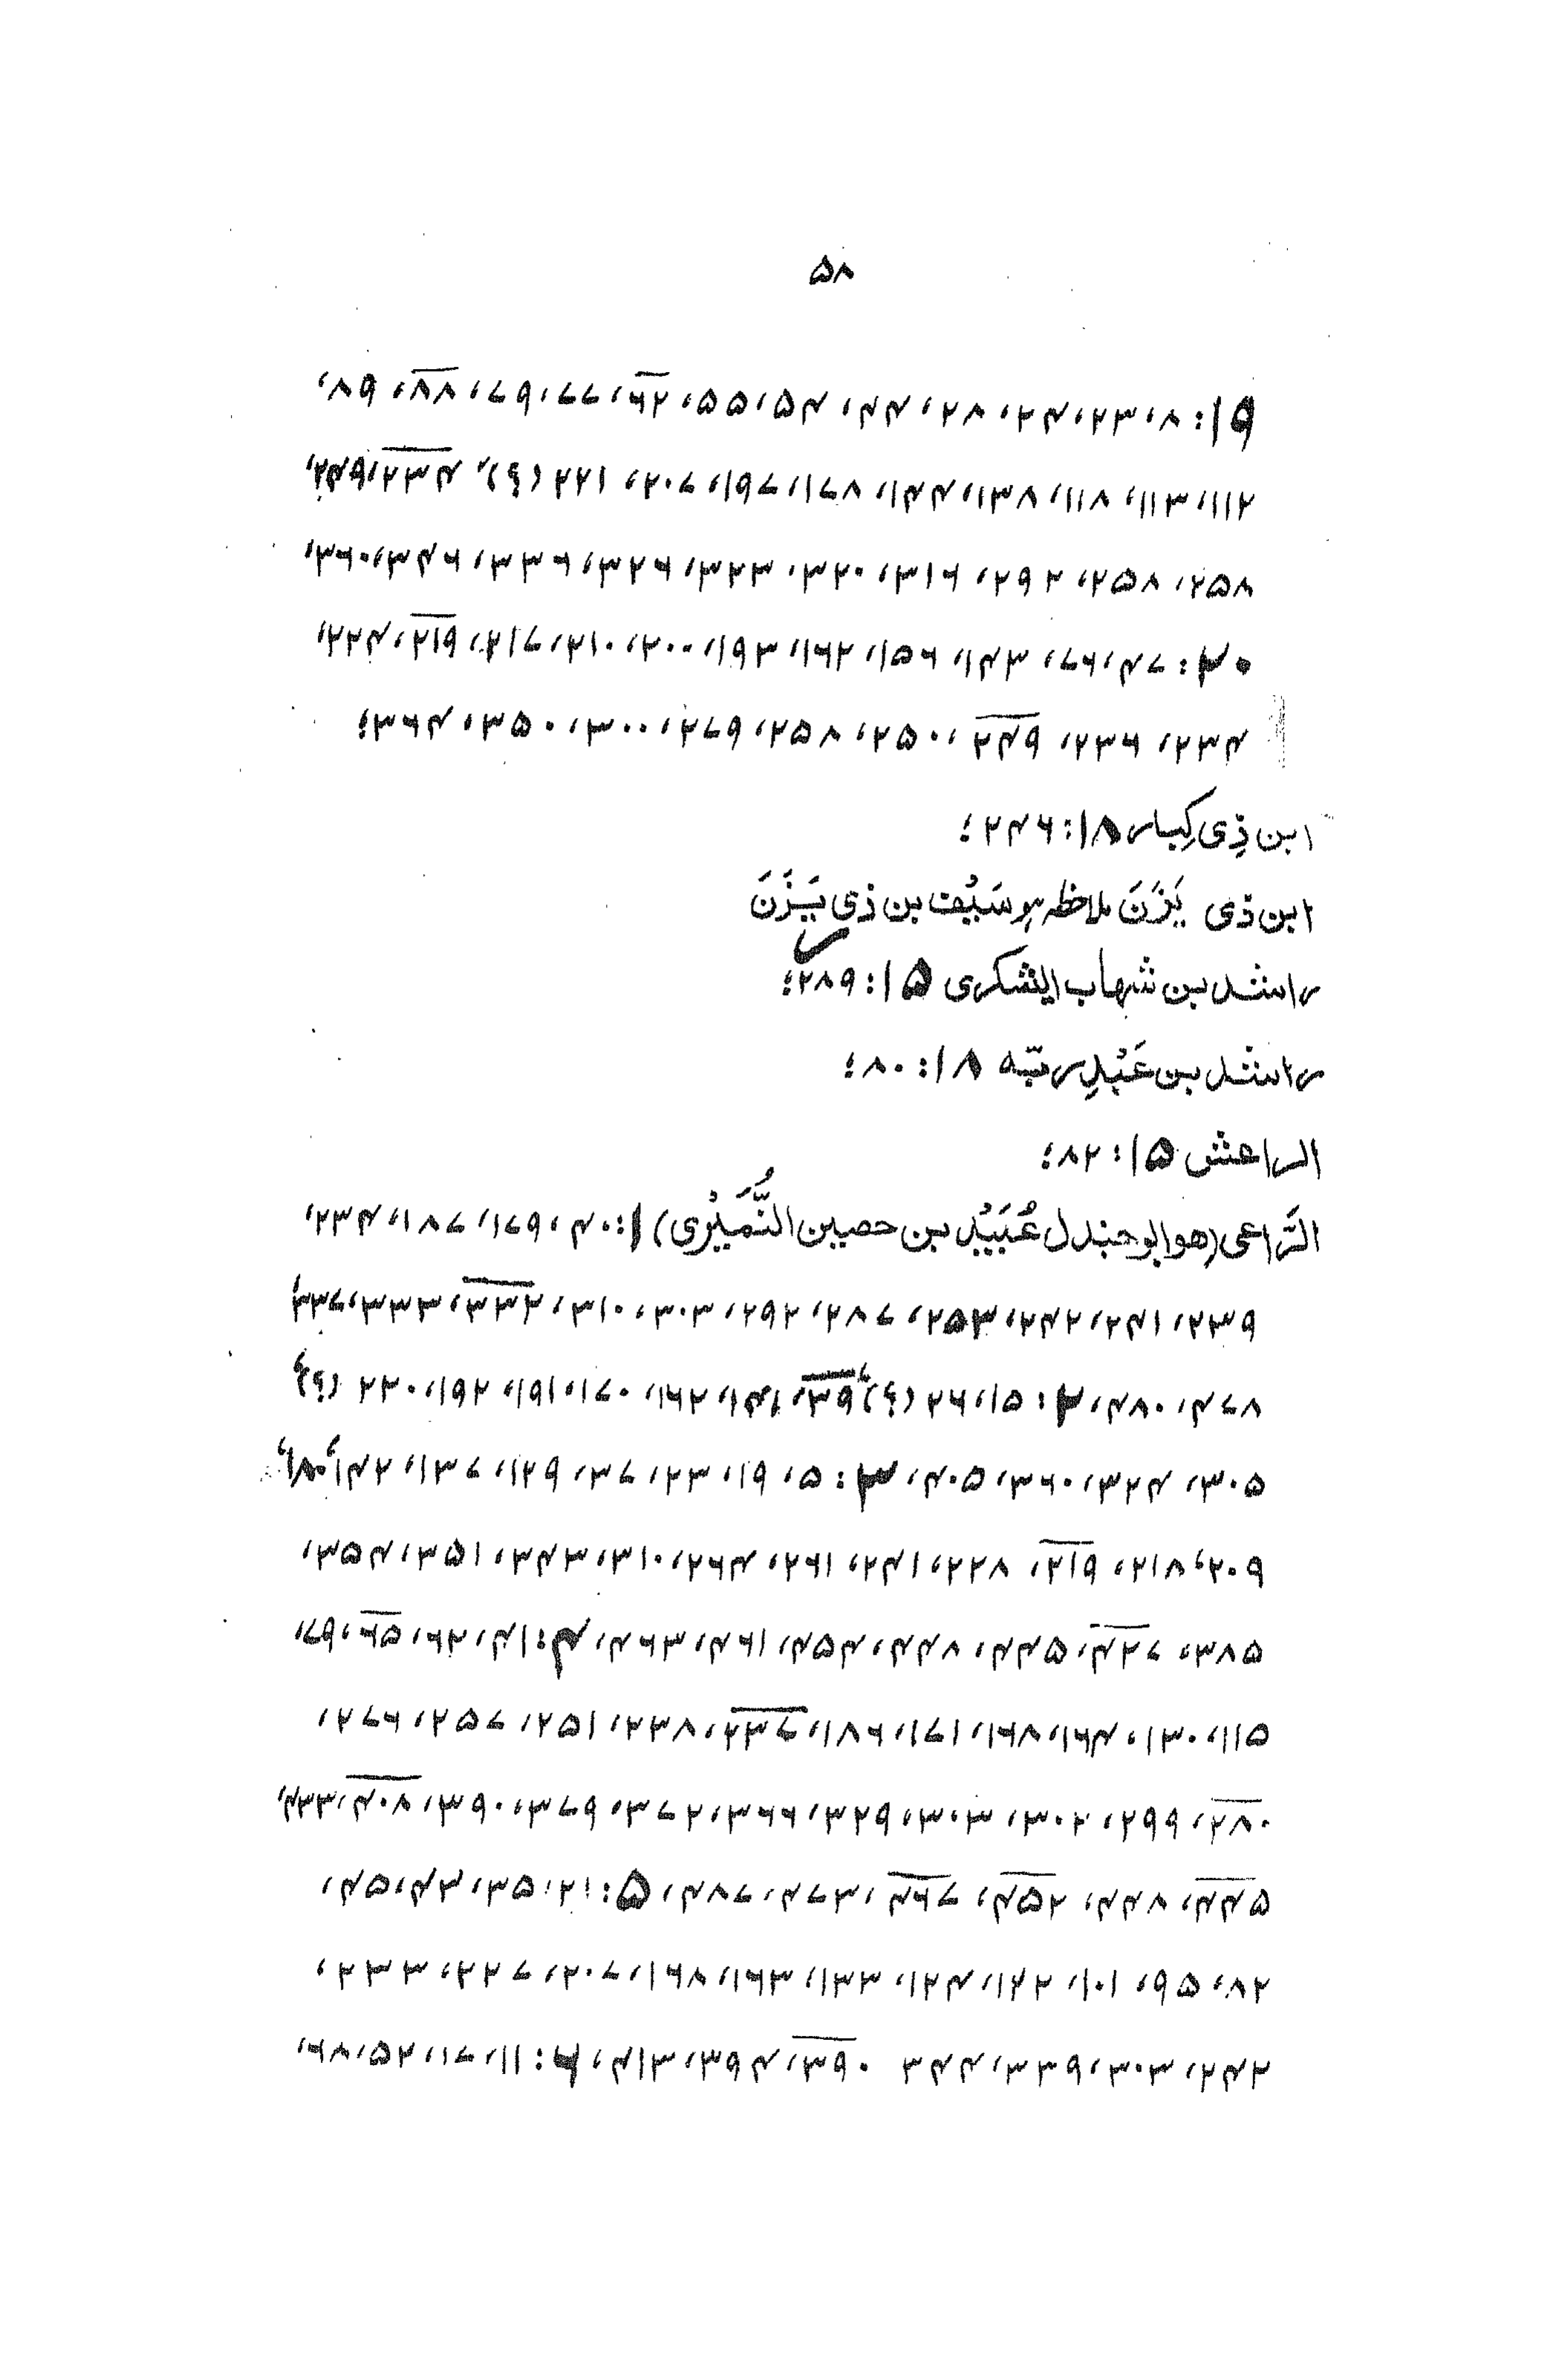 ۵۸
۱۹: ۸، ۲۳، ۲۴، ۲۸، ۴۴، ۵۴، ۵۵، ۶۲، ۷۷، ۷۹، ۸۸، ۸۹،
۱۱۲، ۱۱۳، ۱۱۸، ۱۳۸، ۱۴۴، ۱۷۸، ۱۹۷، ۲۰۷، ۲۲۱ (؟)، ۲۳۴، ۲۴۹،
۲۵۸، ۲۵۸، ۲۹۲، ۳۱۶، ۳۲۰، ۳۲۳، ۳۲۶، ۳۳۶، ۳۴۶، ۳۶۰،
۲۰: ۴۷، ۷۶، ۱۴۳، ۱۵۶، ۱۶۲، ۱۹۳، ۲۰۰، ۲۱۰، ۲۱۷، ۲۱۹، ۲۲۴،
۲۳۴، ۲۳۶، ۲۴۹، ۲۵۰، ۲۵۸، ۲۷۹، ۳۰۰، ۳۵۰، ۳۶۴؛
ابن ذِی کِبار ۱۸: ۲۴۶؛
ابن ذی یَزَنَ ملاحظہ ہو سَیْف بن ذی یَزَنَ
راشد بن شهاب الیشکری ۱۵: ۲۸۹؛
راشد بن عَبْدِ ربّه ۱۸: ۸۰؛
الراعش ۱۵: ۸۲؛
الرَّاعی (هو ابو جندل عُبَیْد بن حصین النُّمَیْری) ۱: ۴۰، ۱۷۹، ۱۸۷، ۲۳۴،
۲۳۹، ۲۴۱، ۲۴۲، ۲۵۳، ۲۸۷، ۲۹۲، ۳۰۳، ۳۱۰، ۳۳۲، ۳۳۳، ۳۳۷،
۴۷۸، ۴۸۰، ۲: ۱۵، ۲۶ (؟)، ۳۹، ۱۴۱، ۱۶۲، ۱۷۰، ۱۹۱، ۱۹۲، ۲۲۰ (؟)،
۳۰۵، ۳۲۴، ۳۶۰، ۴۰۵، ۳: ۵، ۱۹، ۲۳، ۳۷، ۱۲۹، ۱۳۷، ۱۴۲، ۱۸۰،
۲۰۹، ۲۱۸، ۲۱۹، ۲۲۸، ۲۴۱، ۲۶۱، ۲۶۴، ۳۱۰، ۳۴۳، ۳۵۱، ۳۵۴،
۳۸۵، ۴۲۷، ۴۴۵، ۴۴۸، ۴۵۴، ۴۶۱، ۴۶۳، ۴: ۴۱، ۶۲، ۶۵، ۷۹،
۱۱۵، ۱۳۰، ۱۶۴، ۱۶۸، ۱۷۱، ۱۸۶، ۲۳۷، ۲۳۸، ۲۵۱، ۲۵۷، ۲۷۶،
۲۸۰، ۲۹۹، ۳۰۲، ۳۰۳، ۳۲۹، ۳۶۶، ۳۷۲، ۳۷۹، ۳۹۰، ۴۰۸، ۴۳۳،
۴۴۵، ۴۴۸، ۴۵۲، ۴۶۷، ۴۷۳، ۴۸۷، ۵: ۲۱، ۳۵، ۴۳، ۴۵،
۸۲، ۹۵، ۱۰۱، ۱۲۲، ۱۲۴، ۱۳۳، ۱۶۳، ۱۶۸، ۲۰۷، ۲۲۷، ۲۳۳،
۲۴۲، ۳۰۳، ۳۳۹، ۳۴۴ ۳۹۰، ۳۹۴، ۴۱۳، ۶: ۱۱، ۱۷، ۲۵، ۶۸،